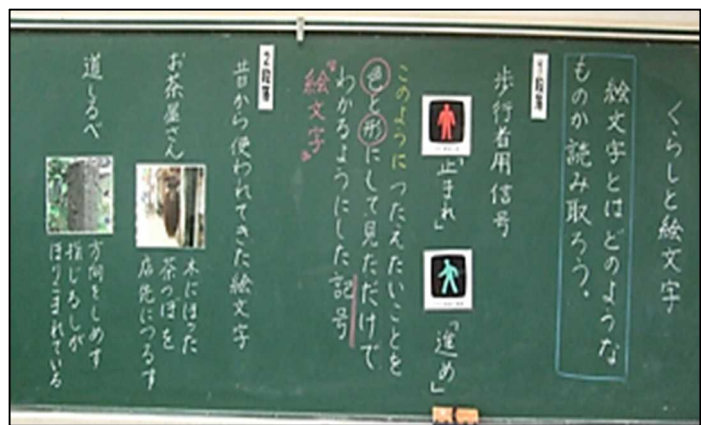 くらしと絵文字
絵文字とはどのような
ものか読み取ろう。
1段落
歩行者用信号
「止まれ」
「進め」
このように つたえたいことを
色と形にして見ただけで
わかるようにした記号
"絵文字"
2段落
昔から使われてきた絵文字
お茶屋さん
木にほった
茶つぼを
店先につるす
道しるべ
方向をしめす
指じるしが
ほりこまれている